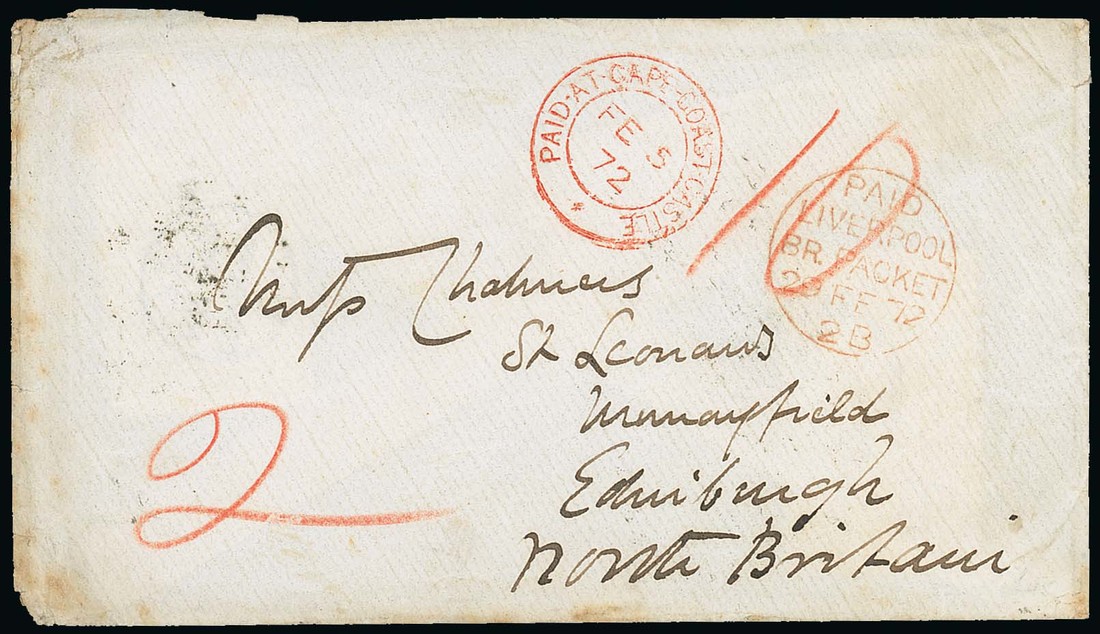 PAID-AT-CAPE-COAST-CASTLE
FE 5
72
*
10
PAID
LIVERPOOL
BR. PACKET
FE 72
2B
Miss Chalmers
St Leonards
Murrayfield
Edinburgh
North Britain
2